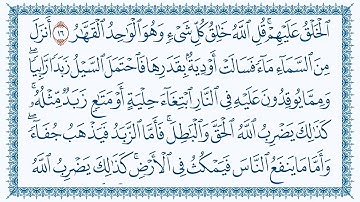 ٱلْخَلْقُ عَلَيْهِمْ ۚ قُلِ ٱللَّهُ خَٰلِقُ كُلِّ شَىْءٍ وَهُوَ ٱلْوَٰحِدُ ٱلْقَهَّٰرُ ١٦ أَنزَلَ
مِنَ ٱلسَّمَآءِ مَآءً فَسَالَتْ أَوْدِيَةٌۢ بِقَدَرِهَا فَٱحْتَمَلَ ٱلسَّيْلُ زَبَدًا رَّابِيًا ۚ
وَمِمَّا يُوقِدُونَ عَلَيْهِ فِى ٱلنَّارِ ٱبْتِغَآءَ حِلْيَةٍ أَوْ مَتَٰعٍ زَبَدٌ مِّثْلُهُۥ ۚ
كَذَٰلِكَ يَضْرِبُ ٱللَّهُ ٱلْحَقَّ وَٱلْبَٰطِلَ ۚ فَأَمَّا ٱلزَّبَدُ فَيَذْهَبُ جُفَآءً ۖ
وَأَمَّا مَا يَنفَعُ ٱلنَّاسَ فَيَمْكُثُ فِى ٱلْأَرْضِ ۚ كَذَٰلِكَ يَضْرِبُ ٱللَّهُ